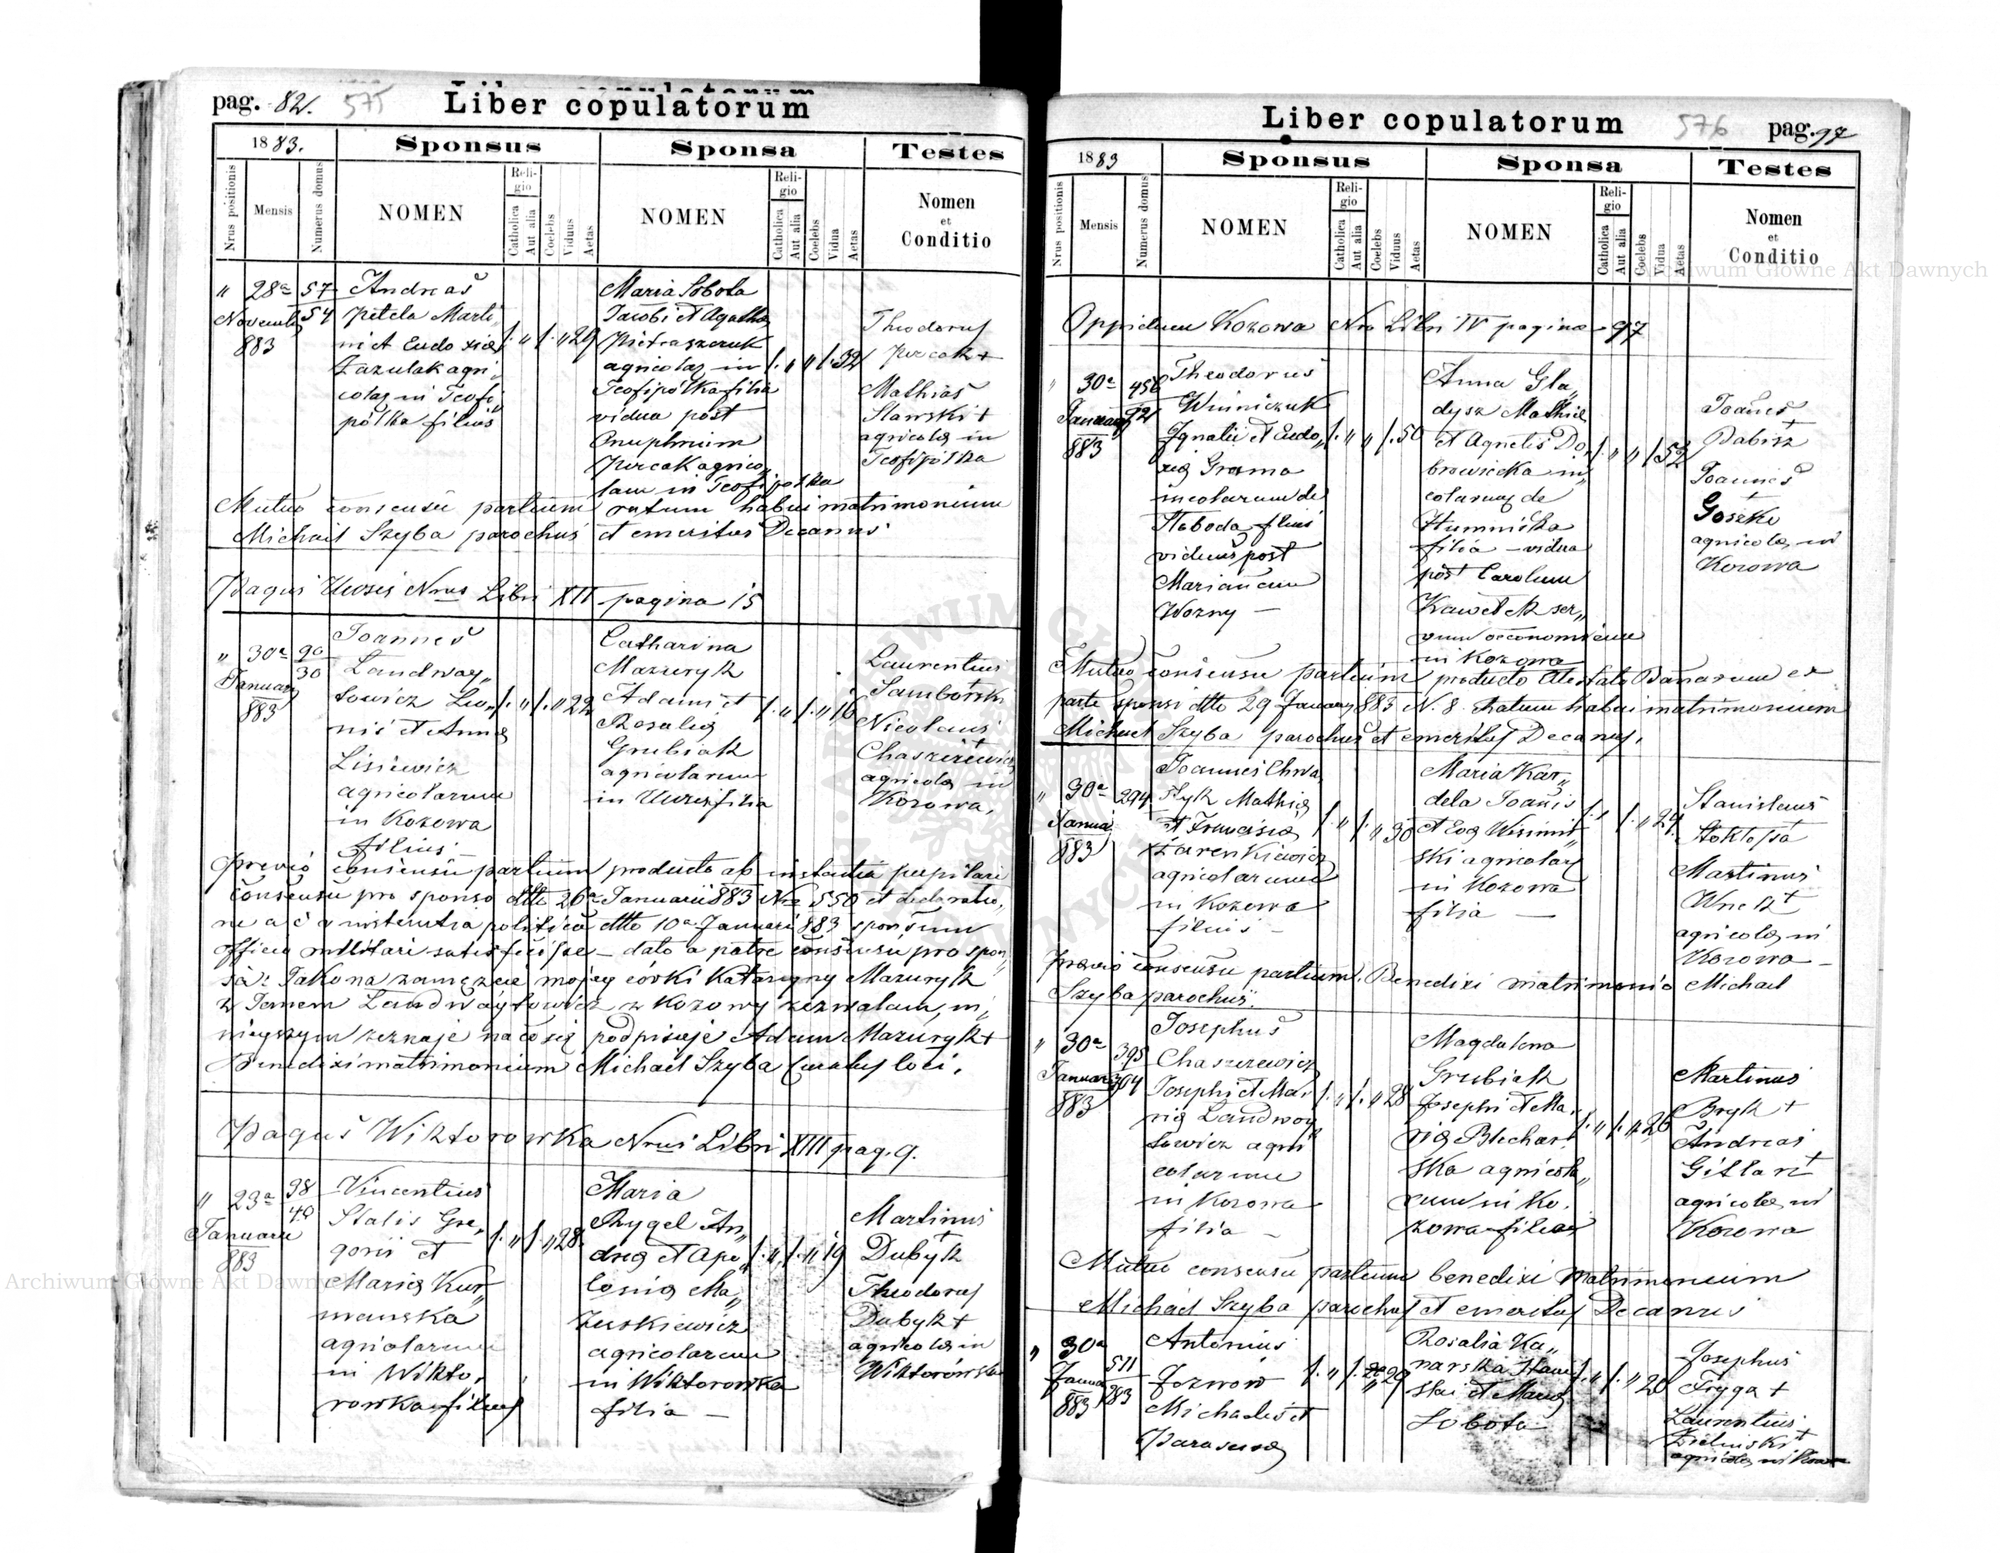 pag. 82. 575 Liber copulatorum
1883.
Sponsus Sponsa Testes
Nrus positionis Mensis Numerus domus NOMEN Religio Catholica Aut alia Coelebs Viduus Aetas NOMEN Religio Catholica Aut alia Coelebs Vidua Aetas Nomen et Conditio
" 28a Novembr 883
57 54
Andreas
Petela Marti„
ni et Eudoxiae
Zazulak agri„
colae in Teofi„
pólka filius
29
Maria Sobota
Jacobi et Agatha
Pietraszczuk
agricolae in
Teofipólka filia
vidua post
Onuphrium
Percak agrico„
lam in Teofipolka
32
Theodorus
Percak +
Mathias
Slawski +
agricolae in
Teofipólka
Mutuo consensu partium ratum habui matrimonium
Michael Szyba parochus et emeritus Decanus
Pagus Uwsie Nrus Libri XII pagina 15
" 30a Januar 883
90 30
Joannes
Landway„
towicz Leo„
nis et Anna
Lisiewicz
agricolarum
in Kozowa
filius
22
Catharina
Mazuryk
Adami et
Rosalia
Grubiak
agricolarum
in Uwsie filia
16
Laurentius
Samborski
Nicolaus
Chaszczewicz
agricolae in
Kozowa,
Previo consensu partium producto ab instantia pupilari
consensu pro sponso dtto 26a Januarii 883 Nro 550 et declaratio„
ne a politica dtto 10a Januari 883 sponsum
officio militari satisfecisse – dato a patre consensu pro spon„
sa: Jako na zamęzcie mojej córki Katarzyny Mazuryk
z Janem Landwaytowicz z Kozowy zezwalam, ni„
niejszym zeznaje na co się podpisuje Adam Mazuryk +
Benedixi matrimonium Michael Szyba Curatus loci.
Pagus Wiktorowka Nrus Libri XIII pag. 9.
" 23a Januarii 883
38 40
Vincentius
Stalis Gre„
gorii et
Maria Kur„
manska
agricolarum
in Wikto„
rowka filius
28
Maria
Rygel An„
drea et Apo„
lonia Ma„
zurkiewicz
agricolarum
in Wiktorowka
filia –
19
Martinus
Dubyk
Theodorus
Dubyk +
agricolae in
Wiktorówka
Liber copulatorum 576 pag. 97
1883
Sponsus Sponsa Testes
Nrus positionis Mensis Numerus domus NOMEN Religio Catholica Aut alia Coelebs Viduus Aetas NOMEN Religio Catholica Aut alia Coelebs Vidua Aetas Nomen et Conditio
Oppidum Kozowa Nro Libri IV pagina – 97
" 30a Januar 883
456 92
Theodorus
Winniczuk
Ignatii et Eudo„
xia Grama
incolarum de
Słaboda filius
viduus post
Mariannam
Wozny –
50
Anna Gła„
dysz Mathia
et Agnetis Do„
browicka in„
colarum de
Humniska
filia – vidua
post Carolum
Kawetek ser„
vum oeconomicum
in Kozowa
52
Joannes
Babisz
Joannes
Goszko
agricolae in
Kozowa
Mutuo consensu partium producto Atestato Bannorum ex
parte sponsi dtto 29 January 883 N. 8. Ratum habui matrimonium
Michael Szyba parochus et emeritus Decanus.
" 30a Janua 883
294
Joannes Chwa„
łyk Mathia
et Francisca
Zarenkiewicz
agricolarum
in Kozowa
filius –
30
Maria Kar„
dela Joannis
et Eva Wisniow„
ski agricolae
in Kozowa
filia –
24
Stanislaus
Stokłosa
Martinus
Wnek +
agricolae in
Kozowa –
Previo consensu partium Benedixi matrimonio Michael
Szyba parochus.
" 30a Januar 883
395 394
Josephus
Chaszczewicz
Josephi et Ma„
ria Landwoy„
towicz agri„
colarum
in Kozowa
filia –
28
Magdalena
Grubiak
Josephi et Ma„
ria Blechar„
ska agricola„
rum in Ko„
zowa filia
26
Martinus
Bryk +
Andreas
Gitlan +
agricolae in
Kozowa
Mutuo consensu partium benedixi Matrimonium
Michael Szyba parochus et emeritus Decanus
" 30a Janua 883
511 283
Antonius
Jozwów
Michaelis et
Parasceva
29
Rosalia Ka„
narska Stani„
slai et Maria
Sobota
20
Josephus
Fryga +
Laurentius
Zielinski +
agricolae in Kozowa
Archiwum Główne Akt Dawnych
Archiwum Główne Akt Dawnych